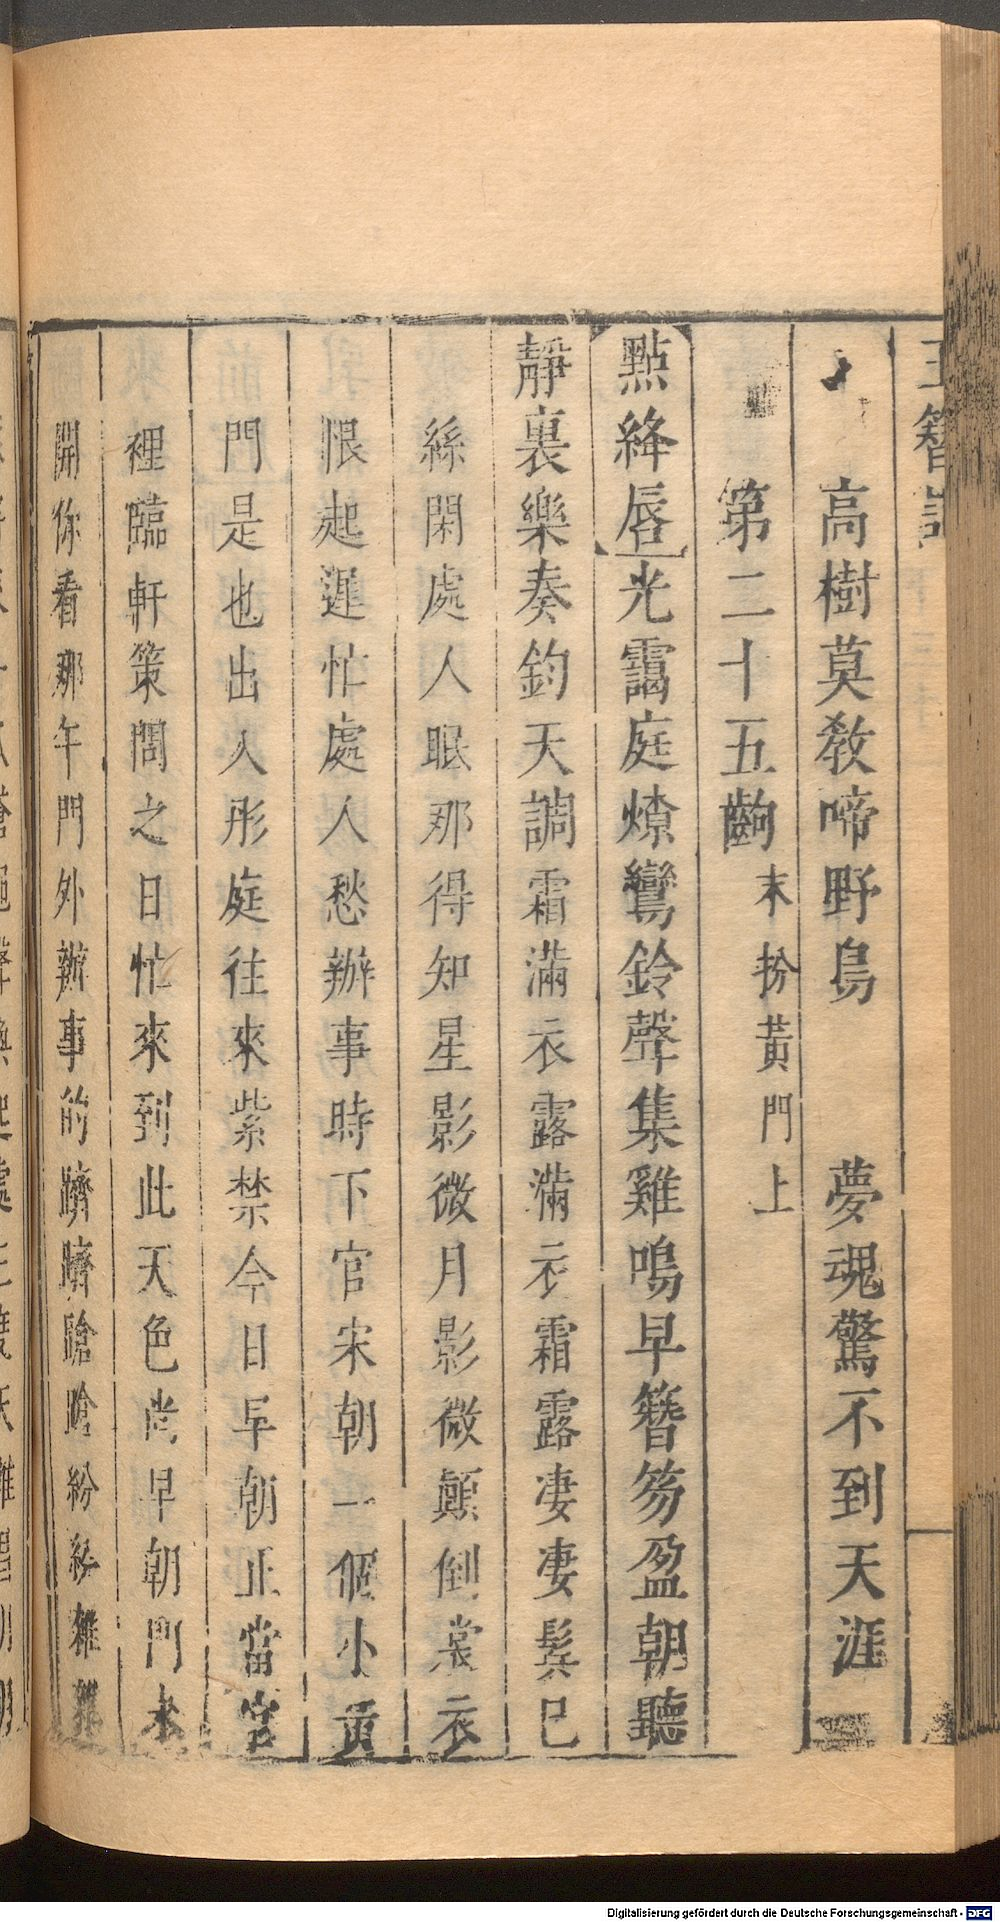 玉簪記
高樹莫教啼野鳥 夢魂驚不到天涯
第二十五齣 末扮黃門上
點絳唇 光靄庭燎鸞鈴聲集雞鳴早簪笏盈朝聽
靜裏樂奏鈞天調霜滿衣露滿衣霜露凄凄鬂已
絲閑處人眠那得知星影微月影微顛倒裳衣
恨起遲忙處人愁辦事時下官宋朝一個小黃
門是也出入彤庭往來紫禁今日早朝正當官
裡臨軒策問之日忙來到此天色尚早朝門未
開你看那午門外辦事的躋躋蹌蹌紛紛雜雜
Digitalisierung gefördert durch die Deutsche Forschungsgemeinschaft - DFG